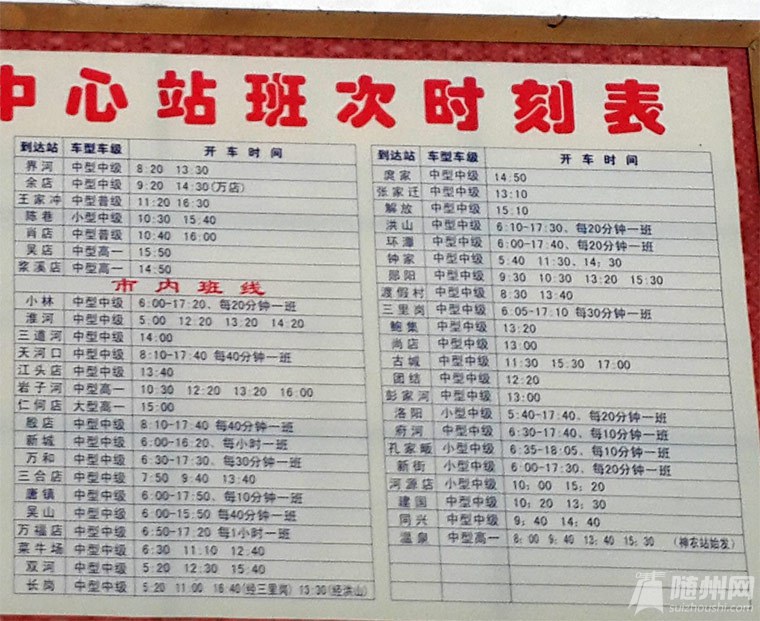 中心站班次时刻表
到达站 车型车级 开车时间
界河 中型中级 8:20 13:30
余店 中型中级 9:20 14:30(万店)
王家冲 中型普级 11:20 16:30
陈巷 小型中级 10:30 15:40
肖店 中型普级 10:40 16:00
吴店 中型高一 15:50
浆溪店 中型高一 14:50
市内班线
小林 中型中级 6:00-17:20、每20分钟一班
淮河 中型中级 5:00 12:20 13:20 14:20
三道河 中型中级 14:00
天河口 中型中级 8:10-17:40 每40分钟一班
江头店 中型中级 13:40
岩子河 中型高一 10:30 12:20 13:20 16:00
仁何店 大型高一 15:00
殷店 中型中级 8:10-17:40 每40分钟一班
新城 中型中级 6:00-16:20、每小时一班
万和 中型中级 6:30-17:30、每30分钟一班
三合店 中型中级 7:50 9:40 13:40
唐镇 中型中级 6:00-17:50、每10分钟一班
吴山 中型中级 6:00-15:50 每40分钟一班
万福店 中型中级 6:50-17:20 每1小时一班
菜牛场 中型中级 6:30 11:10 12:40
双河 中型中级 5:20 12:30 15:40
长岗 中型中级 5:20 11:00 16:40(经三里岗) 13:30(经洪山)
到达站 车型车级 开车时间
家 中型中级 14:50
张家迁 中型中级 13:10
解放 中型中级 15:10
洪山 中型中级 6:10-17:30、每20分钟一班
环潭 中型中级 6:00-17:40、每20分钟一班
钟家 中型中级 5:40 11:30、14:30
郧阳 中型中级 9:30 10:30 13:20 15:30
渡假村 中型中级 8:30 13:40
三里岗 中型中级 6:05-17:10 每30分钟一班
鲍集 中型中级 13:20
尚店 中型中级 13:00
古城 中型中级 11:30 15:30 17:00
团结 中型中级 12:20
彭家河 中型中级 13:00
洛阳 小型中级 5:40-17:40、每20分钟一班
府河 中型中级 6:30-17:40、每10分钟一班
孔家畈 小型中级 6:35-18:05、每10分钟一班
新街 小型中级 6:00-17:30、每20分钟一班
河源店 小型中级 10:00 15:20
建国 中型中级 10:20 13:30
同兴 中型中级 9:40 14:40
温泉 中型高一 8:00 9:40 13:40 15:30 (神农站始发)
随州网
suizhoushi.com